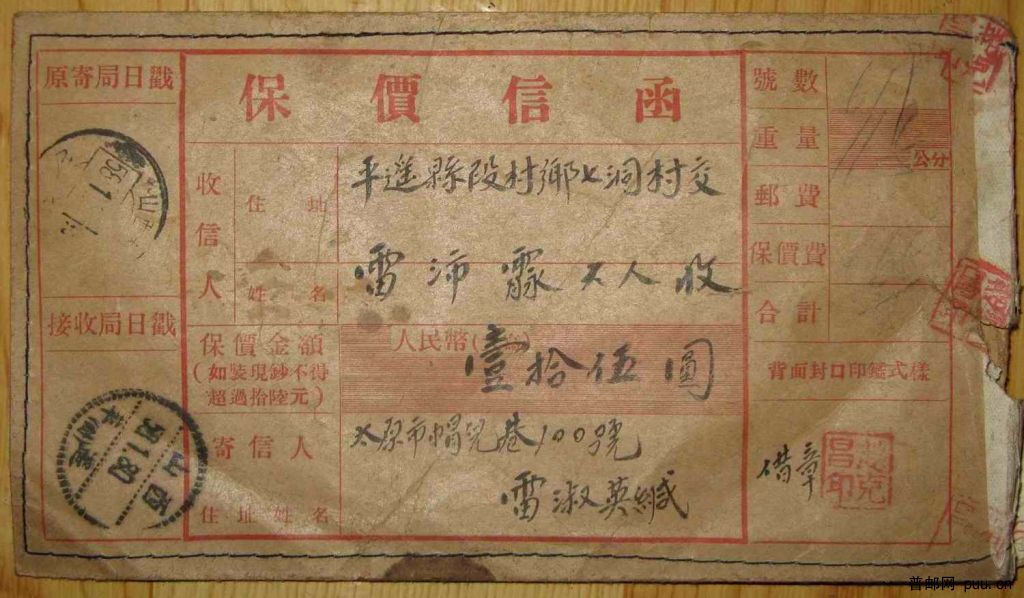 原寄局日戳
接收局日戳
保價信函
收信人
住址
平遥縣段村鄉七洞村交
姓名
雷沛霖大人收
保價金額
(如裝現鈔不得
超過拾陸元)
人民幣(
壹拾伍圓
寄信人
住址姓名
太原市帽兒巷100號
雷淑英緘
號數
重量
公分
郵費
保價費
合計
背面封口印鑑式樣
借章
山西
56.1.20
普邮网 puu.cn